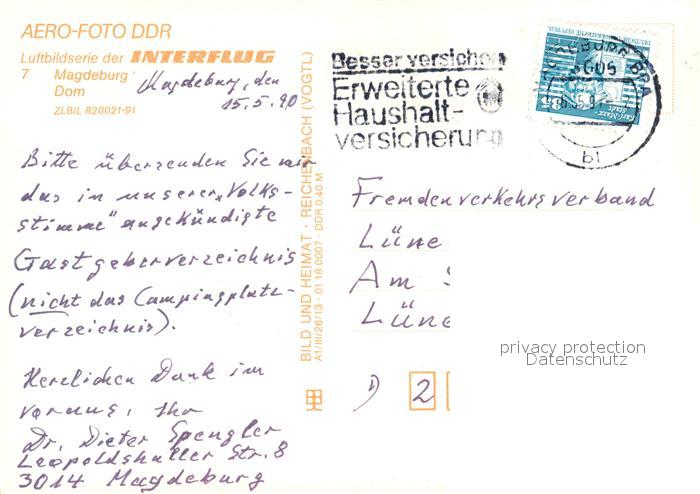 AERO-FOTO DDR
Luftbildserie der INTERFLUG
7 Magdeburg
Dom
ZLB/L 820021-91
Magdeburg, den
15.5.90
Bitte überzenden Sie mir
das in unserer „Volks-
stimme" angekündigte
Gastgeberverzeichnis
(nicht das Campingplatz-
verzeichnis).
Herzlichen Dank im
voraus, Ihr
Dr. Dieter Spengler
Leopoldshaller Str. 8
3014 Magdeburg
BILD UND HEIMAT · REICHENBACH (VOGTL)
A1/III/26/13 · 01 18 0007 · DDR 0,40 M
Besser versichern
Erweiterte
Haushalt-
versicherung
MAGDEBURG BPA
3005
bl
Fremdenverkehrsverband
Lüne
Am
Lüne
D 2
privacy protection
Datenschutz